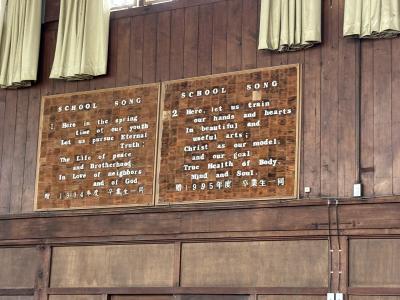 SCHOOL SONG
1 Here in the spring
time of our youth
Let us pursue Eternal
Truth;
The Life of peace
and Brotherhood
In Love of neighbors
and of God.
贈 1994年度 卒業生一同
SCHOOL SONG
2 Here, let us train
our hands and hearts
In beautiful and
useful arts;
Christ as our model,
and our goal
True Health of Body,
Mind and Soul.
贈 1995年度 卒業生一同